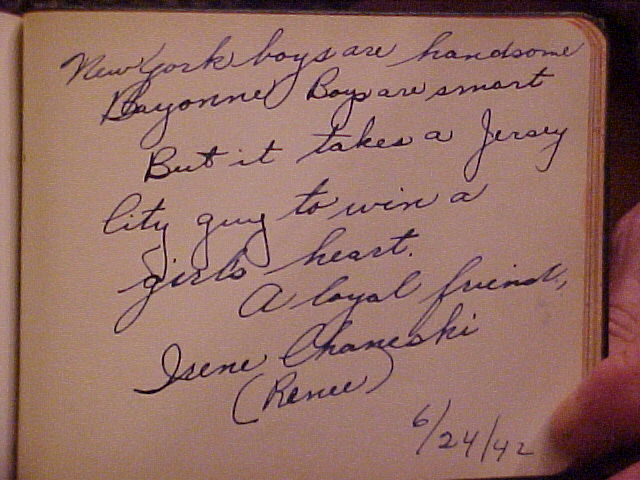 New York boys are handsome
Bayonne Boys are smart
But it takes a Jersey
City guy to win a
girls heart.
A loyal friend,
Irene Chaneski
(Renee)
6/24/42